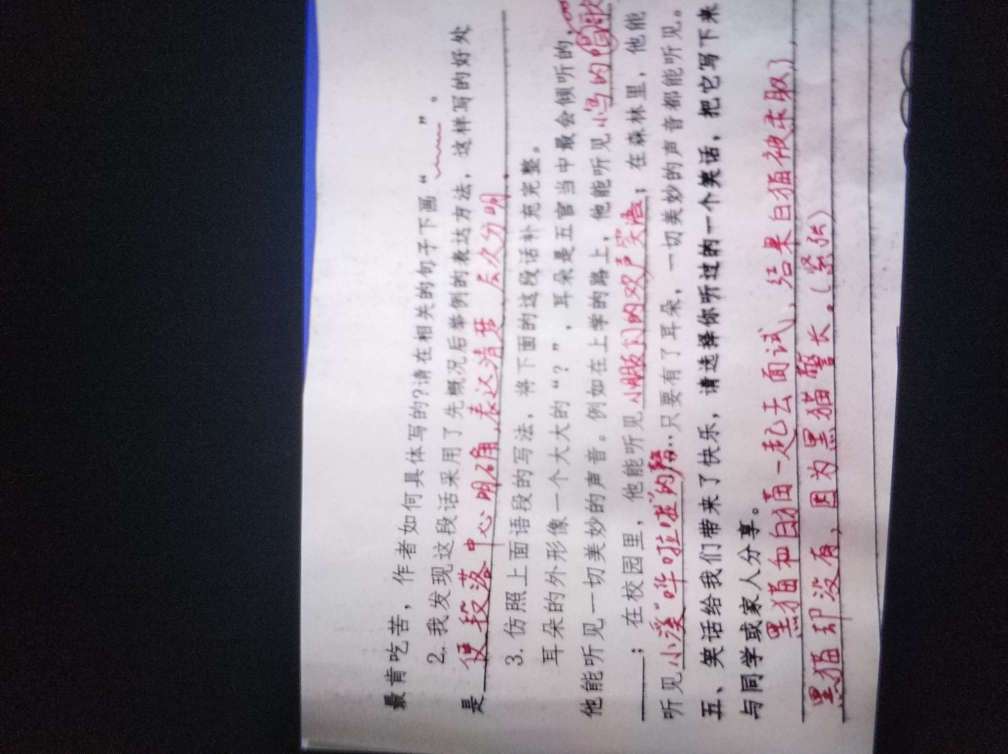 最肯吃苦，作者如何具体写的？请在相关的句子下画“﹏﹏”。
2. 我发现这段话采用了先概况后举例的表达方法，这样写的好处
是使段落中心明确，表达清楚，层次分明。
3. 仿照上面语段的写法，将下面的这段话补充完整。
耳朵的外形像一个大大的“？”，耳朵是五官当中最会倾听的，
他能听见一切美妙的声音。例如在上学的路上，他能听见小鸟的唱歌
；在校园里，他能听见小朋友们的欢声笑语；在森林里，他能
听见小溪“哗啦啦”的……只要有了耳朵，一切美妙的声音都能听见。
五、笑话给我们带来了快乐，请选择你听过的一个笑话，把它写下来
与同学或家人分享。
黑猫和白猫一起去面试，结果白猫被录取，
黑猫却没有，因为黑猫警长。（紧张）